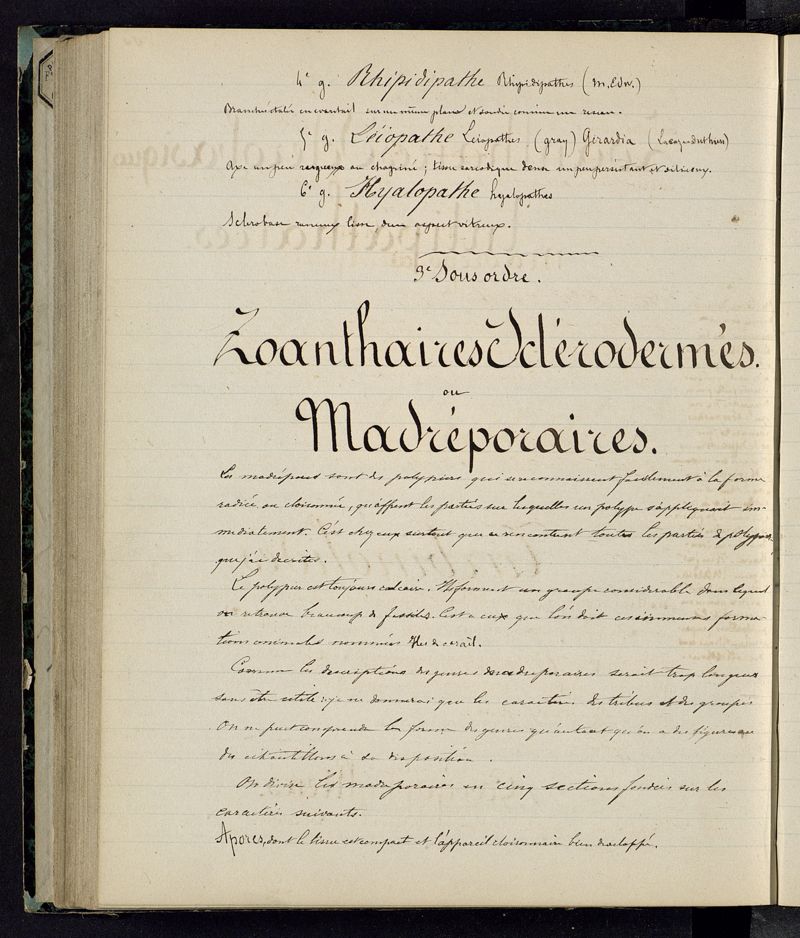 4e g. Rhipidipathe Rhipidipathes (M. Edw.)
Branches étalées en éventail sur un même plan et soudées comme un réseau.
5e g. Léiopathe Leiopathes (gray) Gerardia (Lacaze Duthiers)
Axe un peu rugueux ou chagriné ; tissu sarcodique dense un peu persistant et siliceux.
6e g. Hyalopathe hyalopathes
Sclérobase rameux lisse, d'un aspect vitreux.
3e Sous ordre.
Zoanthaires Sclérodermés.
ou
Madréporaires.
Les madrépores sont des polypiers qui se reconnaissent facilement à la forme
radiée ou cloisonnée, qu'offrent les parties sur lesquelles un polype s'appliquait im-
médiatement. C'est chez eux surtout que se rencontrent toutes les parties du polypier
que j'ai décrites.
Le polypier est toujours calcaire. Ils forment un groupe considérable dans lequel
on retrouve beaucoup de fossiles. C'est à eux que l'on doit ces immenses forma-
tions animales nommées Iles de corail.
Comme les descriptions des genres de madréporaires serait trop longues
sans être utile : je ne donnerai que les caractères des tribus et des groupes
On ne peut comprendre la forme des genres qu'autant qu'on a des figures ou
des échantillons à sa disposition.
On divise les madréporaires en cinq sections fondées sur les
caractères suivants.
Apores, dont le tissu est compact et l'appareil cloisonnaire bien développé.